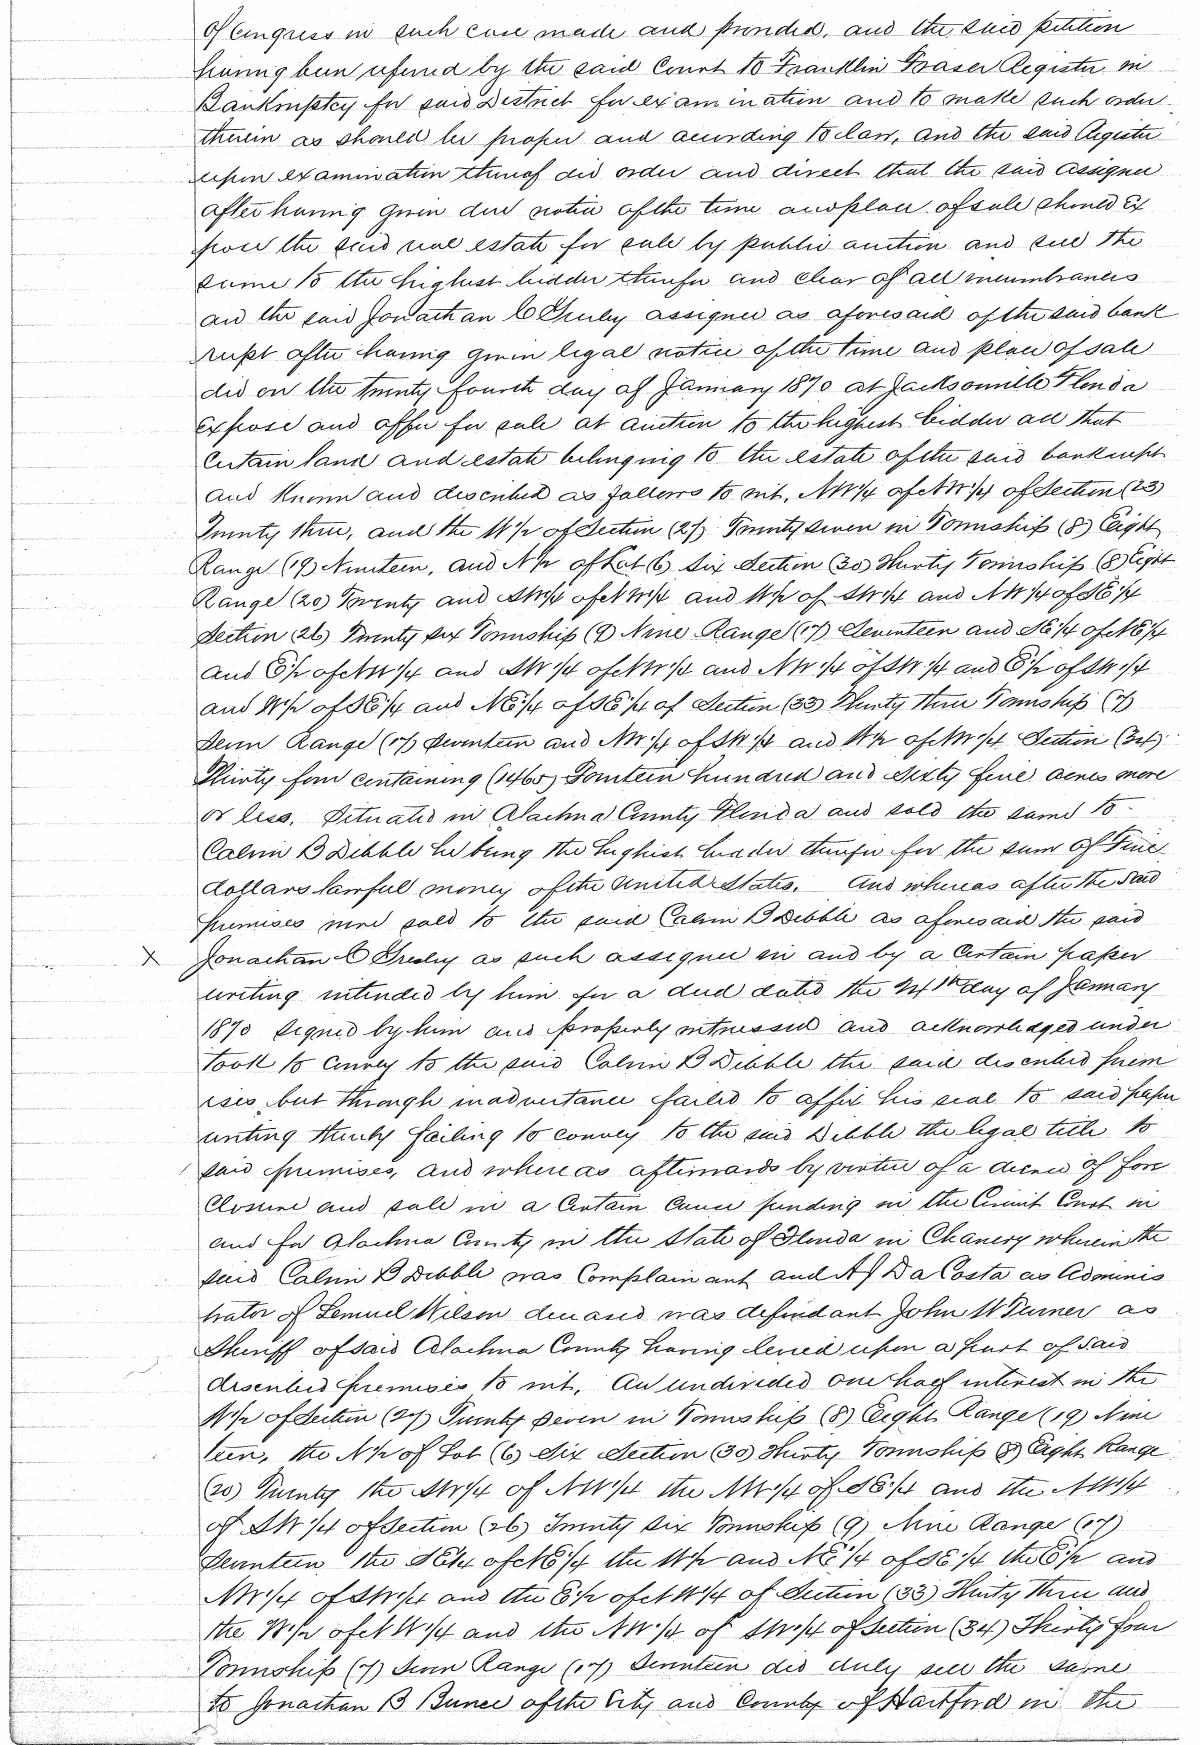 of Congress in such case made and provided, and the said petition
having been referred by the said Court to Franklin Fraser Register in
Bankruptcy for said District for examination and to make such order
therein as should be proper and according to law, and the said Register
upon examination thereof did order and direct that the said assignee
after having given due notice of the time and place of sale should Ex
pose the said real estate for sale by public auction and sell the
same to the highest bidder therefor and clear of all incumbrances
and the said Jonathan C Greeley assignee as aforesaid of the said bank
rupt after having given legal notice of the time and place of sale
did on the twenty fourth day of January 1870 at Jacksonville Florida
expose and offer for sale at auction to the highest bidder all that
certain land and estate belonging to the estate of the said bankrupt
and known and described as follows to wit, NW 1/4 of NW 1/4 of Section (23)
Twenty three, and the W 1/2 of Section (27) Twenty seven in Township (8) Eight
Range (19) Nineteen, and N 1/2 of Lot (6) Six Section (30) Thirty Township (8) Eight
Range (20) Twenty and SW 1/4 of NW 1/4 and W 1/2 of SW 1/4 and NW 1/4 of SE 1/4
Section (26) Twenty six Township (9) Nine Range (17) Seventeen and SE 1/4 of NE 1/4
and E 1/2 of NW 1/4 and SW 1/4 of NW 1/4 and NW 1/4 of SW 1/4 and E 1/2 of SW 1/4
and W 1/2 of SE 1/4 and NE 1/4 of SE 1/4 of Section (33) Thirty three Township (7)
Seven Range (17) Seventeen and NW 1/4 of SW 1/4 and W 1/2 of NW 1/4 Section (34)
Thirty four containing (1465) Fourteen hundred and Sixty five acres more
or less, Situated in Alachua County Florida and sold the same to
Calvin B Dibble he being the highest bidder therefor for the sum of Five
dollars lawful money of the United States. And whereas after the said
premises were sold to the said Calvin B Dibble as aforesaid the said
X Jonathan C Greeley as such assignee in and by a Certain paper
writing intended by him for a deed dated the 24th day of January
1870 signed by him and properly witnessed and acknowledged under
took to convey to the said Calvin B Dibble the said described prem
ises, but through inadvertance failed to affix his seal to said paper
writing thereby failing to convey to the said Dibble the legal title to
said premises, and whereas afterwards by virtue of a decree of fore
closure and sale in a Certain Cause pending in the Circuit Court in
and for Alachua County in the State of Florida in Chancery wherein the
said Calvin B Dibble was Complainant and A J Da Costa as Adminis
trator of Lemuel Wilson deceased was defendant John W Turner as
Sheriff of said Alachua County having levied upon a part of said
described premises to wit, An undivided one half interest in the
W 1/2 of Section (27) Twenty seven in Township (8) Eight Range (19) Nine
teen, the N 1/2 of Lot (6) Six Section (30) Thirty Township (8) Eight Range
(20) Twenty the SW 1/4 of NW 1/4 the NW 1/4 of SE 1/4 and the NW 1/4
of SW 1/4 of Section (26) Twenty six Township (9) Nine Range (17)
Seventeen the SE 1/4 of NE 1/4 the W 1/2 and NE 1/4 of SE 1/4 the E 1/2 and
NW 1/4 of SW 1/4 and the E 1/2 of NW 1/4 of Section (33) Thirty three and
the W 1/2 of NW 1/4 and the NW 1/4 of SW 1/4 of Section (34) Thirty four
Township (7) Seven Range (17) Seventeen did duly sell the same
to Jonathan B Bunce of the City and County of Hartford in the